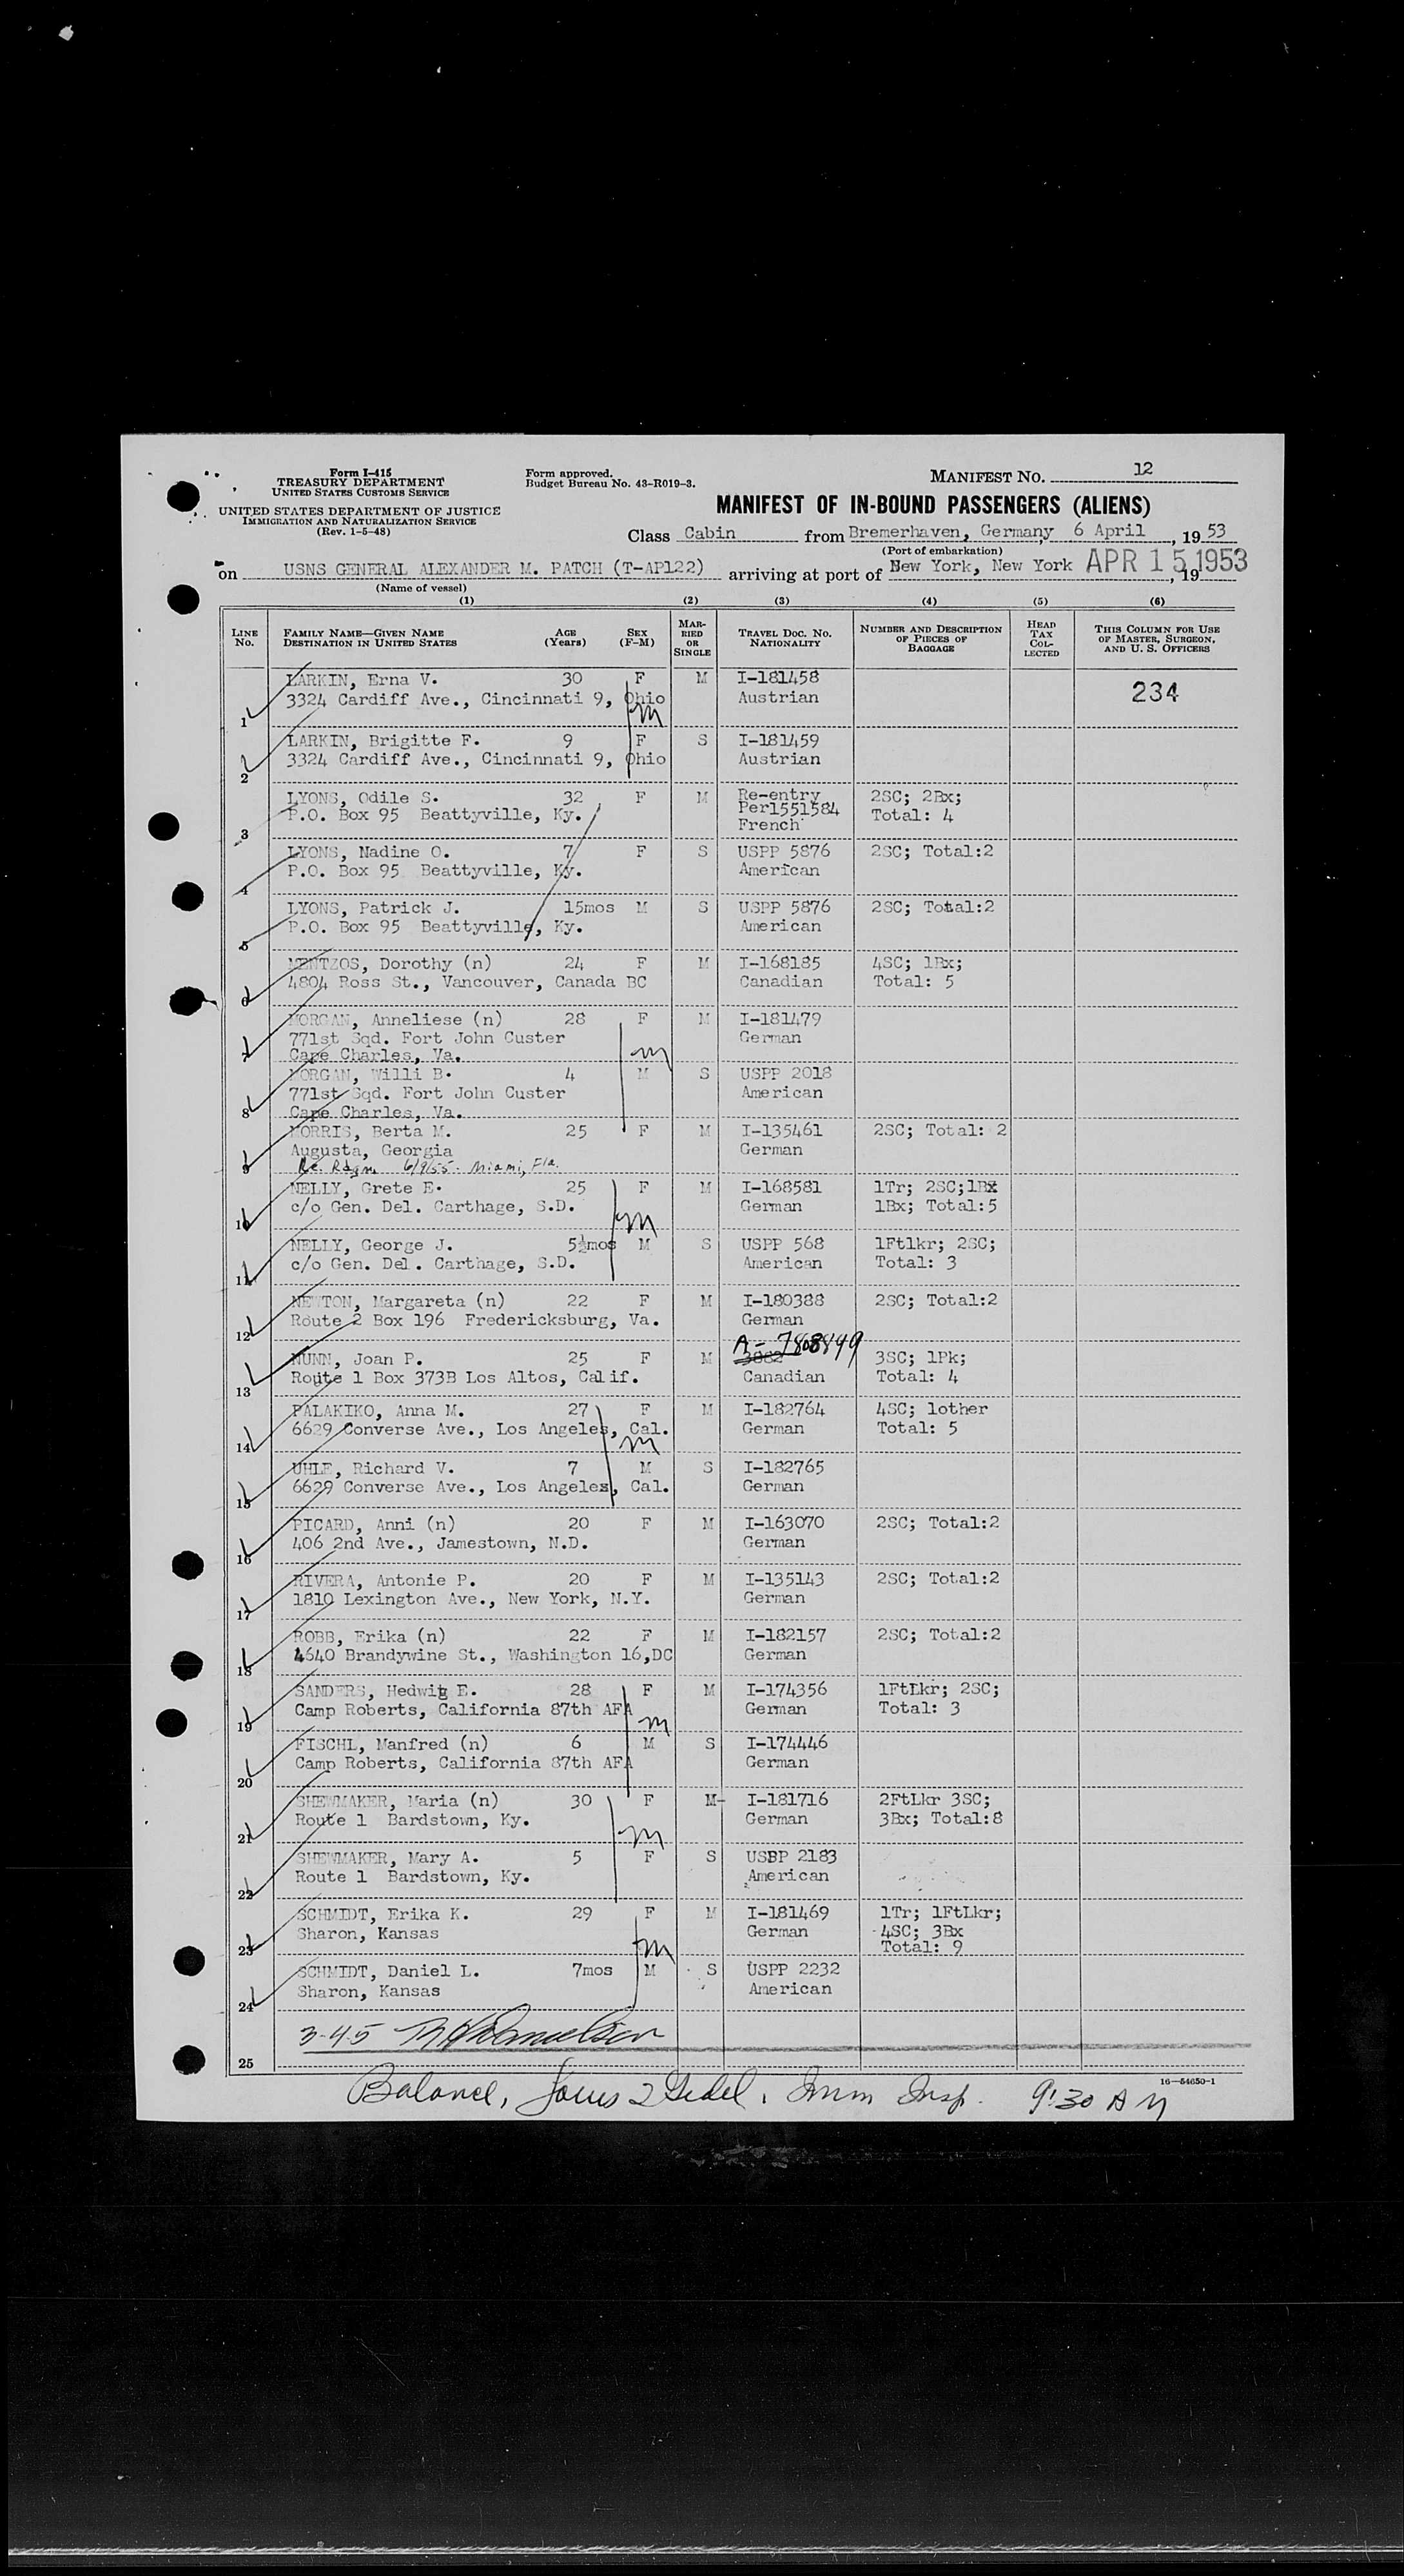 Form I-415
TREASURY DEPARTMENT
UNITED STATES CUSTOMS SERVICE
UNITED STATES DEPARTMENT OF JUSTICE
IMMIGRATION AND NATURALIZATION SERVICE
(Rev. 1-5-48)
Form approved.
Budget Bureau No. 43-R019-3.
MANIFEST NO. 12
MANIFEST OF IN-BOUND PASSENGERS (ALIENS)
Class Cabin from Bremerhaven, Germany 6 April, 1953
(Port of embarkation)
on USNS GENERAL ALEXANDER M. PATCH (T-AP122) arriving at port of New York, New York APR 15 1953, 19
(Name of vessel)
(1) (2) (3) (4) (5) (6)
LINE No. FAMILY NAME—GIVEN NAME DESTINATION IN UNITED STATES AGE (Years) SEX (F-M) MARRIED OR SINGLE TRAVEL DOC. NO. NATIONALITY NUMBER AND DESCRIPTION OF PIECES OF BAGGAGE HEAD TAX COLLECTED THIS COLUMN FOR USE OF MASTER, SURGEON, AND U. S. OFFICERS
LARKIN, Erna V. 30 F M I-181458
3324 Cardiff Ave., Cincinnati 9, Ohio Austrian 234
1 m
LARKIN, Brigitte F. 9 F S I-181459
3324 Cardiff Ave., Cincinnati 9, Ohio Austrian
2
LYONS, Odile S. 32 F M Re-entry 2SC; 2Bx;
P.O. Box 95 Beattyville, Ky. Per1551584 Total: 4
3 French
LYONS, Nadine O. 7 F S USPP 5876 2SC; Total:2
P.O. Box 95 Beattyville, Ky. American
4
LYONS, Patrick J. 15mos M S USPP 5876 2SC; Total:2
P.O. Box 95 Beattyville, Ky. American
5
MENTZOS, Dorothy (n) 24 F M I-168185 4SC; 1Bx;
4804 Ross St., Vancouver, Canada BC Canadian Total: 5
6
MORGAN, Anneliese (n) 28 F M I-181479
771st Sqd. Fort John Custer German
7 Cape Charles, Va. m
MORGAN, Willi B. 4 M S USPP 2018
771st Sqd. Fort John Custer American
8 Cape Charles, Va.
MORRIS, Berta M. 25 F M I-135461 2SC; Total: 2
Augusta, Georgia German
9 6/9/55. Miami, Fla.
NELLY, Grete E. 25 F M I-168581 1Tr; 2SC;1Bx
c/o Gen. Del. Carthage, S.D. German 1Bx; Total:5
10 m
NELLY, George J. 5½mos M S USPP 568 1Ftlkr; 2SC;
c/o Gen. Del. Carthage, S.D. American Total: 3
11
NEWTON, Margareta (n) 22 F M I-180388 2SC; Total:2
Route 2 Box 196 Fredericksburg, Va. German
12 A-7808849
NUNN, Joan P. 25 F M 3882 3SC; 1Pk;
Route 1 Box 373B Los Altos, Calif. Canadian Total: 4
13
PALAKIKO, Anna M. 27 F M I-182764 4SC; 1other
6629 Converse Ave., Los Angeles, Cal. German Total: 5
14 m
UHLE, Richard V. 7 M S I-182765
6629 Converse Ave., Los Angeles, Cal. German
15
PICARD, Anni (n) 20 F M I-163070 2SC; Total:2
406 2nd Ave., Jamestown, N.D. German
16
RIVERA, Antonie P. 20 F M I-135143 2SC; Total:2
1810 Lexington Ave., New York, N.Y. German
17
ROBB, Erika (n) 22 F M I-182157 2SC; Total:2
4640 Brandywine St., Washington 16,DC German
18
SANDERS, Hedwig E. 28 F M I-174356 1FtLkr; 2SC;
Camp Roberts, California 87th AFA German Total: 3
19 m
FISCHL, Manfred (n) 6 M S I-174446
Camp Roberts, California 87th AFA German
20
SHEWMAKER, Maria (n) 30 F M- I-181716 2FtLkr 3SC;
Route 1 Bardstown, Ky. German 3Bx; Total:8
21 m
SHEWMAKER, Mary A. 5 F S USBP 2183
Route 1 Bardstown, Ky. American
22
SCHMIDT, Erika K. 29 F M I-181469 1Tr; 1FtLkr;
Sharon, Kansas German 4SC; 3Bx
23 m Total: 9
SCHMIDT, Daniel L. 7mos M S USPP 2232
Sharon, Kansas American
24
3-45
25
16—54650-1
Balance, Imm Insp. 9:30 AM